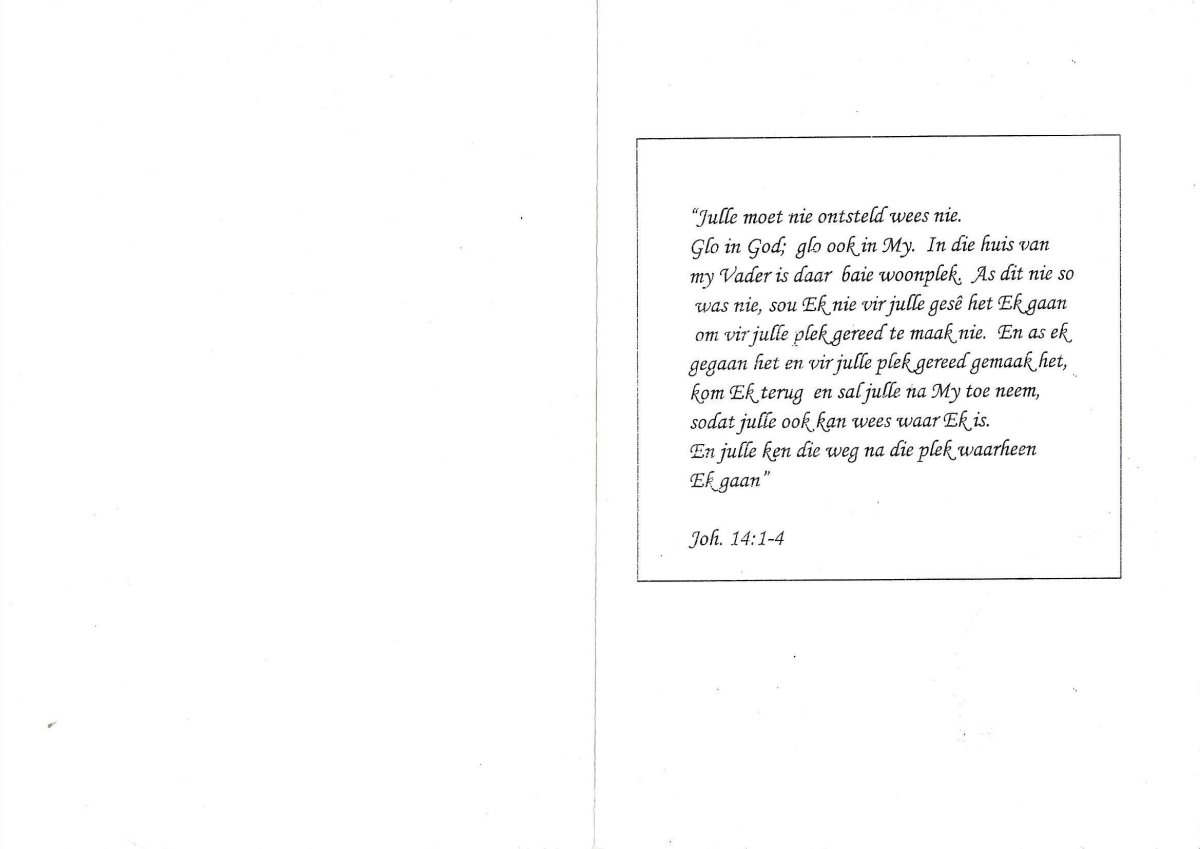 “Julle moet nie ontsteld wees nie.
Glo in God; glo ook in My. In die huis van
my Vader is daar baie woonplek. As dit nie so
was nie, sou Ek nie vir julle gesê het Ek gaan
om vir julle plek gereed te maak nie. En as ek
gegaan het en vir julle plek gereed gemaak het,
kom Ek terug en sal julle na My toe neem,
sodat julle ook kan wees waar Ek is.
En julle ken die weg na die plek waarheen
Ek gaan”
Joh. 14:1-4